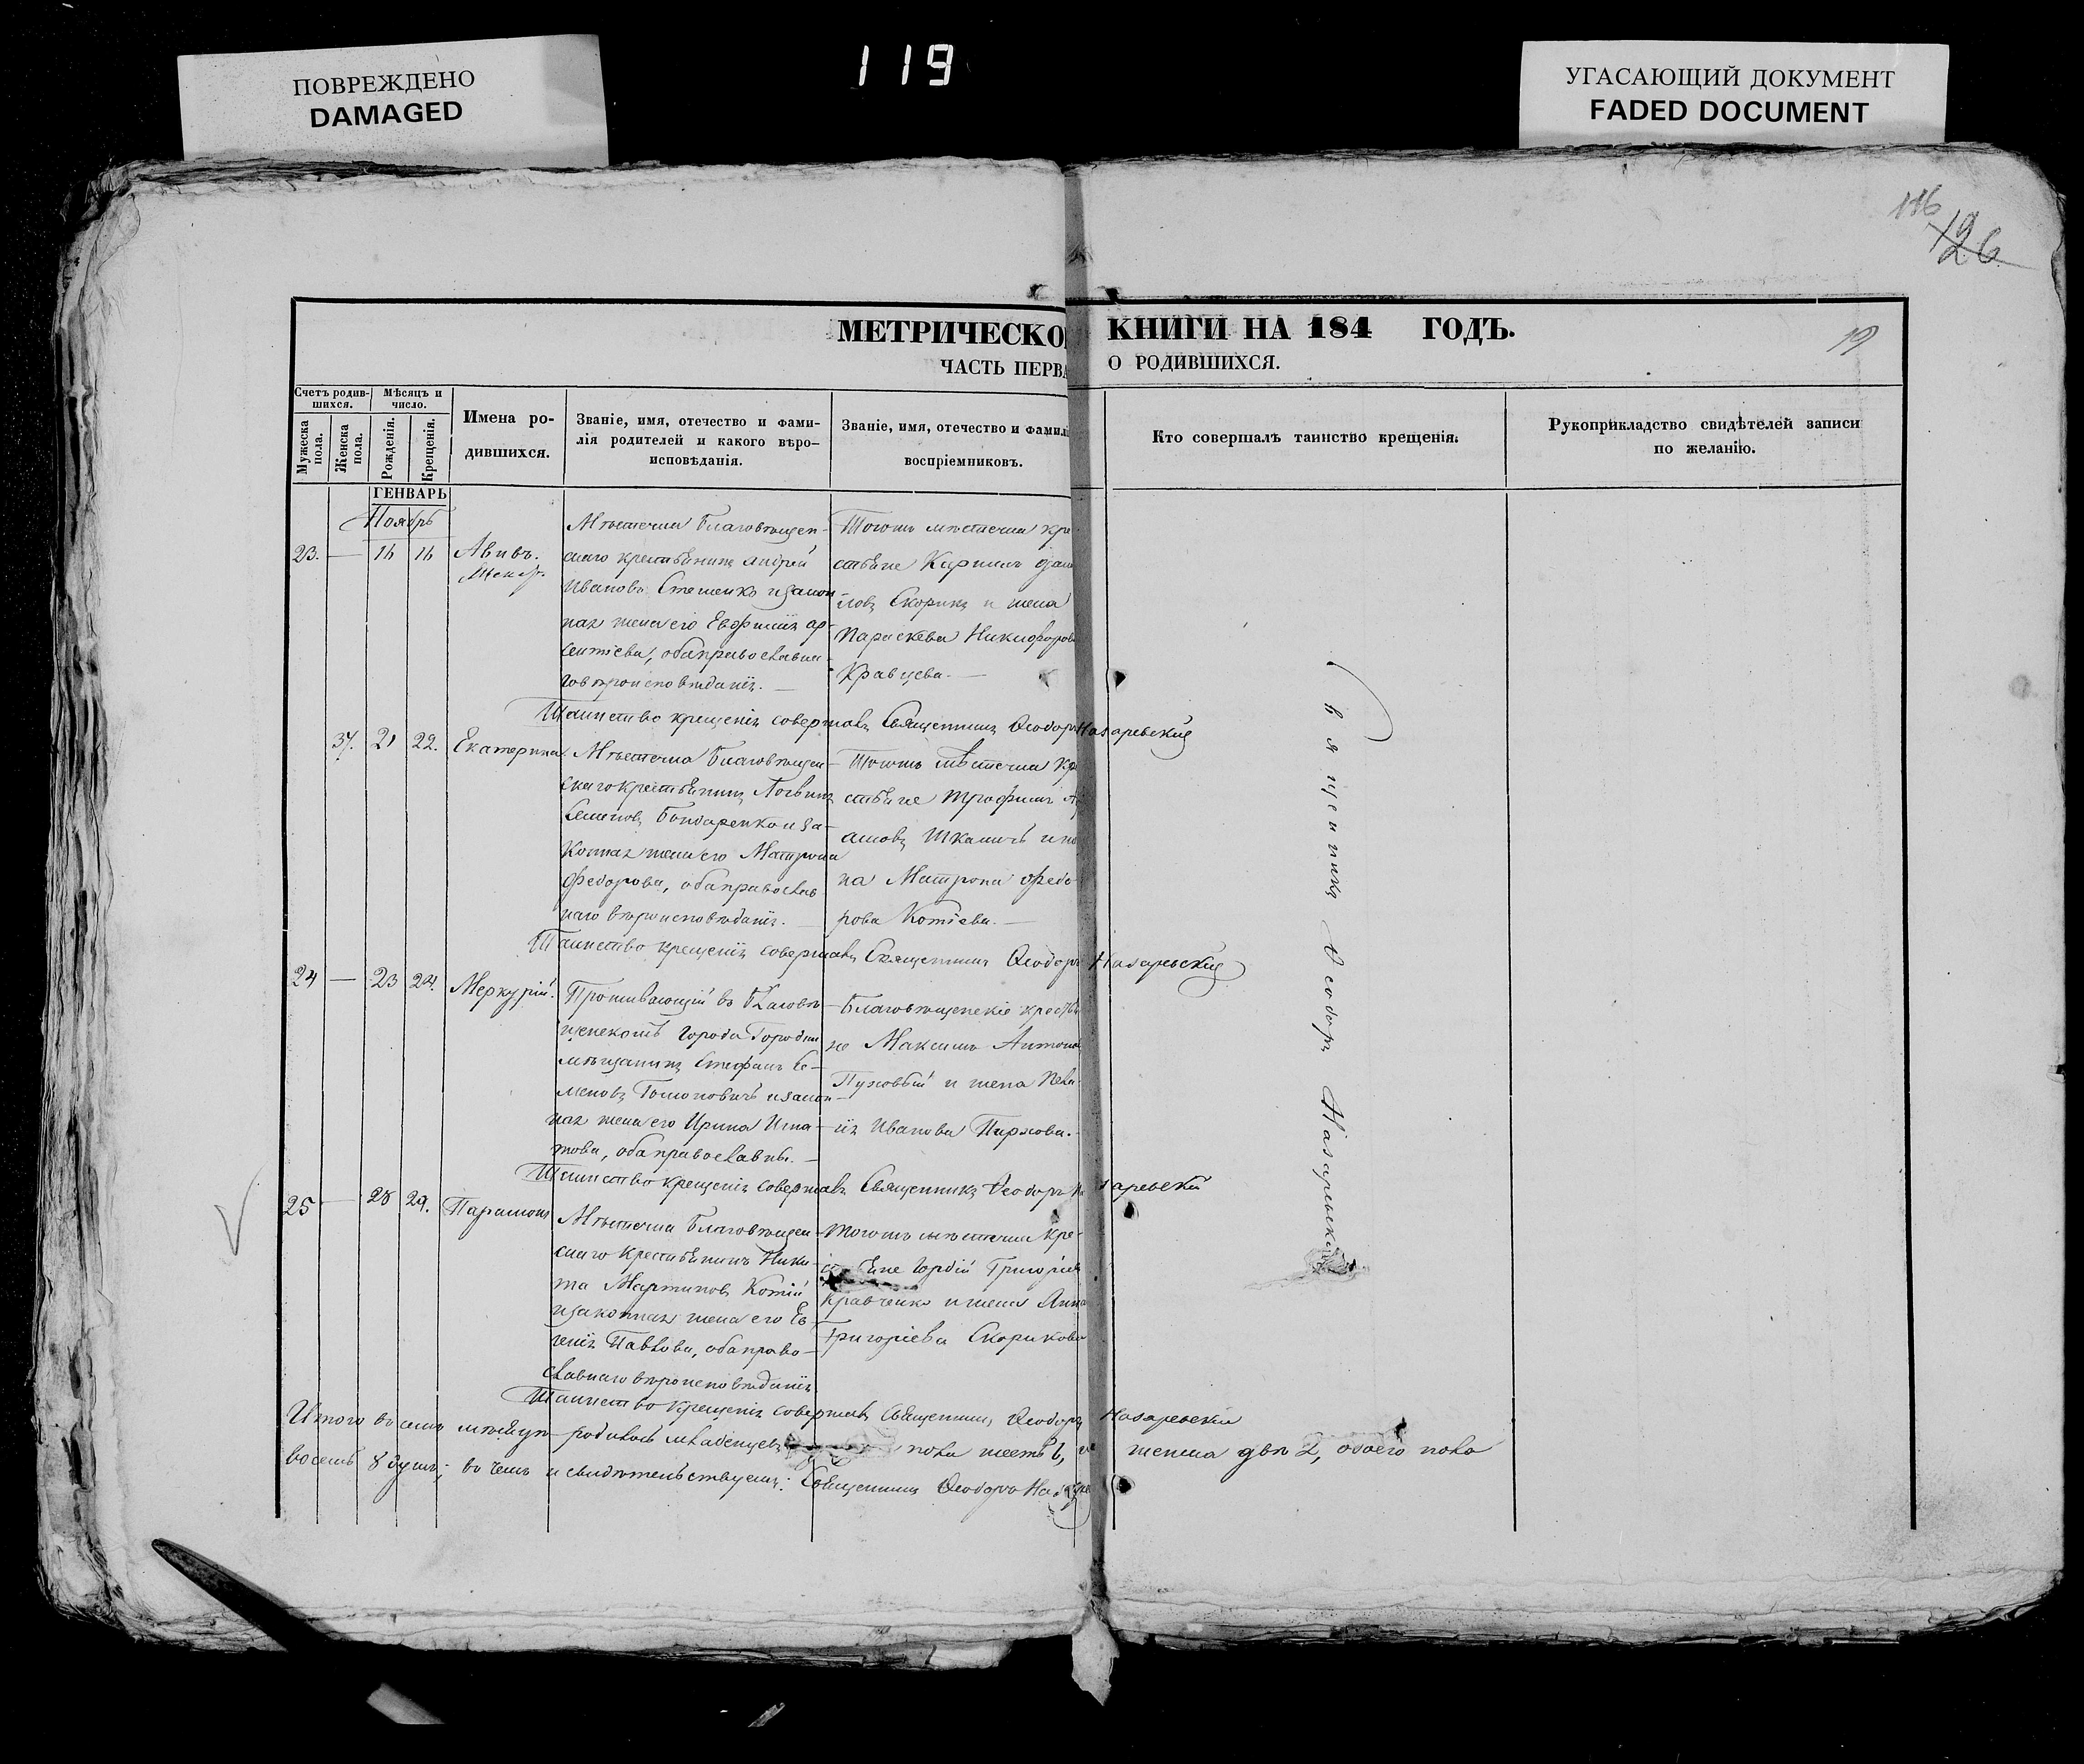 ПОВРЕЖДЕНО
DAMAGED
119
УГАСАЮЩИЙ ДОКУМЕНТ
FADED DOCUMENT
116
126
МЕТРИЧЕСКО КНИГИ НА 184 ГОДЪ.
19
ЧАСТЬ ПЕРВА О РОДИВШИХСЯ.
Счетъ родив-
шихся.
Мужеска пола.
Женска пола.
Мѣсяцъ и
число.
Рожденія.
Крещенія.
Имена ро-
дившихся.
Званіе, имя, отечество и фами-
лія родителей и какого вѣро-
исповѣданія.
Званіе, имя, отечество и фамил
воспріемниковъ.
Кто совершалъ таинство крещенія.
Рукоприкладство свидѣтелей записи
по желанію.
ГЕНВАРЬ
Ноябрь
23. — 16 16 Авивъ.
Мѣстечка Благовѣщен-
скаго крестьянинъ Андрей
Ивановъ Стешенко и закон
ная жена его Евфимія Ар-
сентіева, оба православна-
го вѣроисповѣданія. —
Тогожъ мѣстечка кре
стьяне Кирилъ Дани
ловъ Скорикъ и жена
Параскева Никифорова
Кравцева. —
Таинство крещенія совершалъ Священникъ Ѳеодоръ Назаревскій
37. 21 22. Екатерина
Мѣстечка Благовѣщен-
скаго крестьянинъ Логвинъ
Семеновъ Бондаренко и за-
конная жена его Матрона
Федорова, оба православ
наго вѣроисповѣданія. —
Тогожъ мѣстечка кре
стьяне Трофимъ
Матрона Федо-
рова Котіева. —
Таинство крещенія совершалъ Священникъ Ѳеодоръ Назаревскій
24 — 23 24. Меркурій.
Проживающій въ Благовѣ-
щенскомъ города Городни
мѣщанинъ Стефанъ Се-
меновъ и закон-
ная жена его Ирина Игна-
това, оба православны. —
Благовѣщенскіе крестья
не Максимъ Антоно
и жена Пела
гія Иванова
Таинство крещенія совершалъ Священникъ Ѳеодоръ Назаревскій
25 — 28 29. Парамонъ
Мѣстечка Благовѣщен-
скаго крестьянинъ Ники-
та Мартиновъ Котій
и законная жена его Ев-
генія Павлова, оба право-
славнаго вѣроисповѣданія
Тогожъ мѣстечка кре-
стьяне Гордій Григоріев
Кравченко и жена Анна
Григоріева Скорикова
Таинство крещенія совершалъ Священникъ Ѳеодоръ Назаревскій
Итого въ семъ мѣсяцѣ родилось младенцевъ пола шесть 6, женска двѣ 2, обоего пола
восемь 8 душъ; въ чемъ и свидѣтельствуемъ: Священникъ Ѳеодоръ Назаре
вященникъ Ѳеодоръ Назаревскій